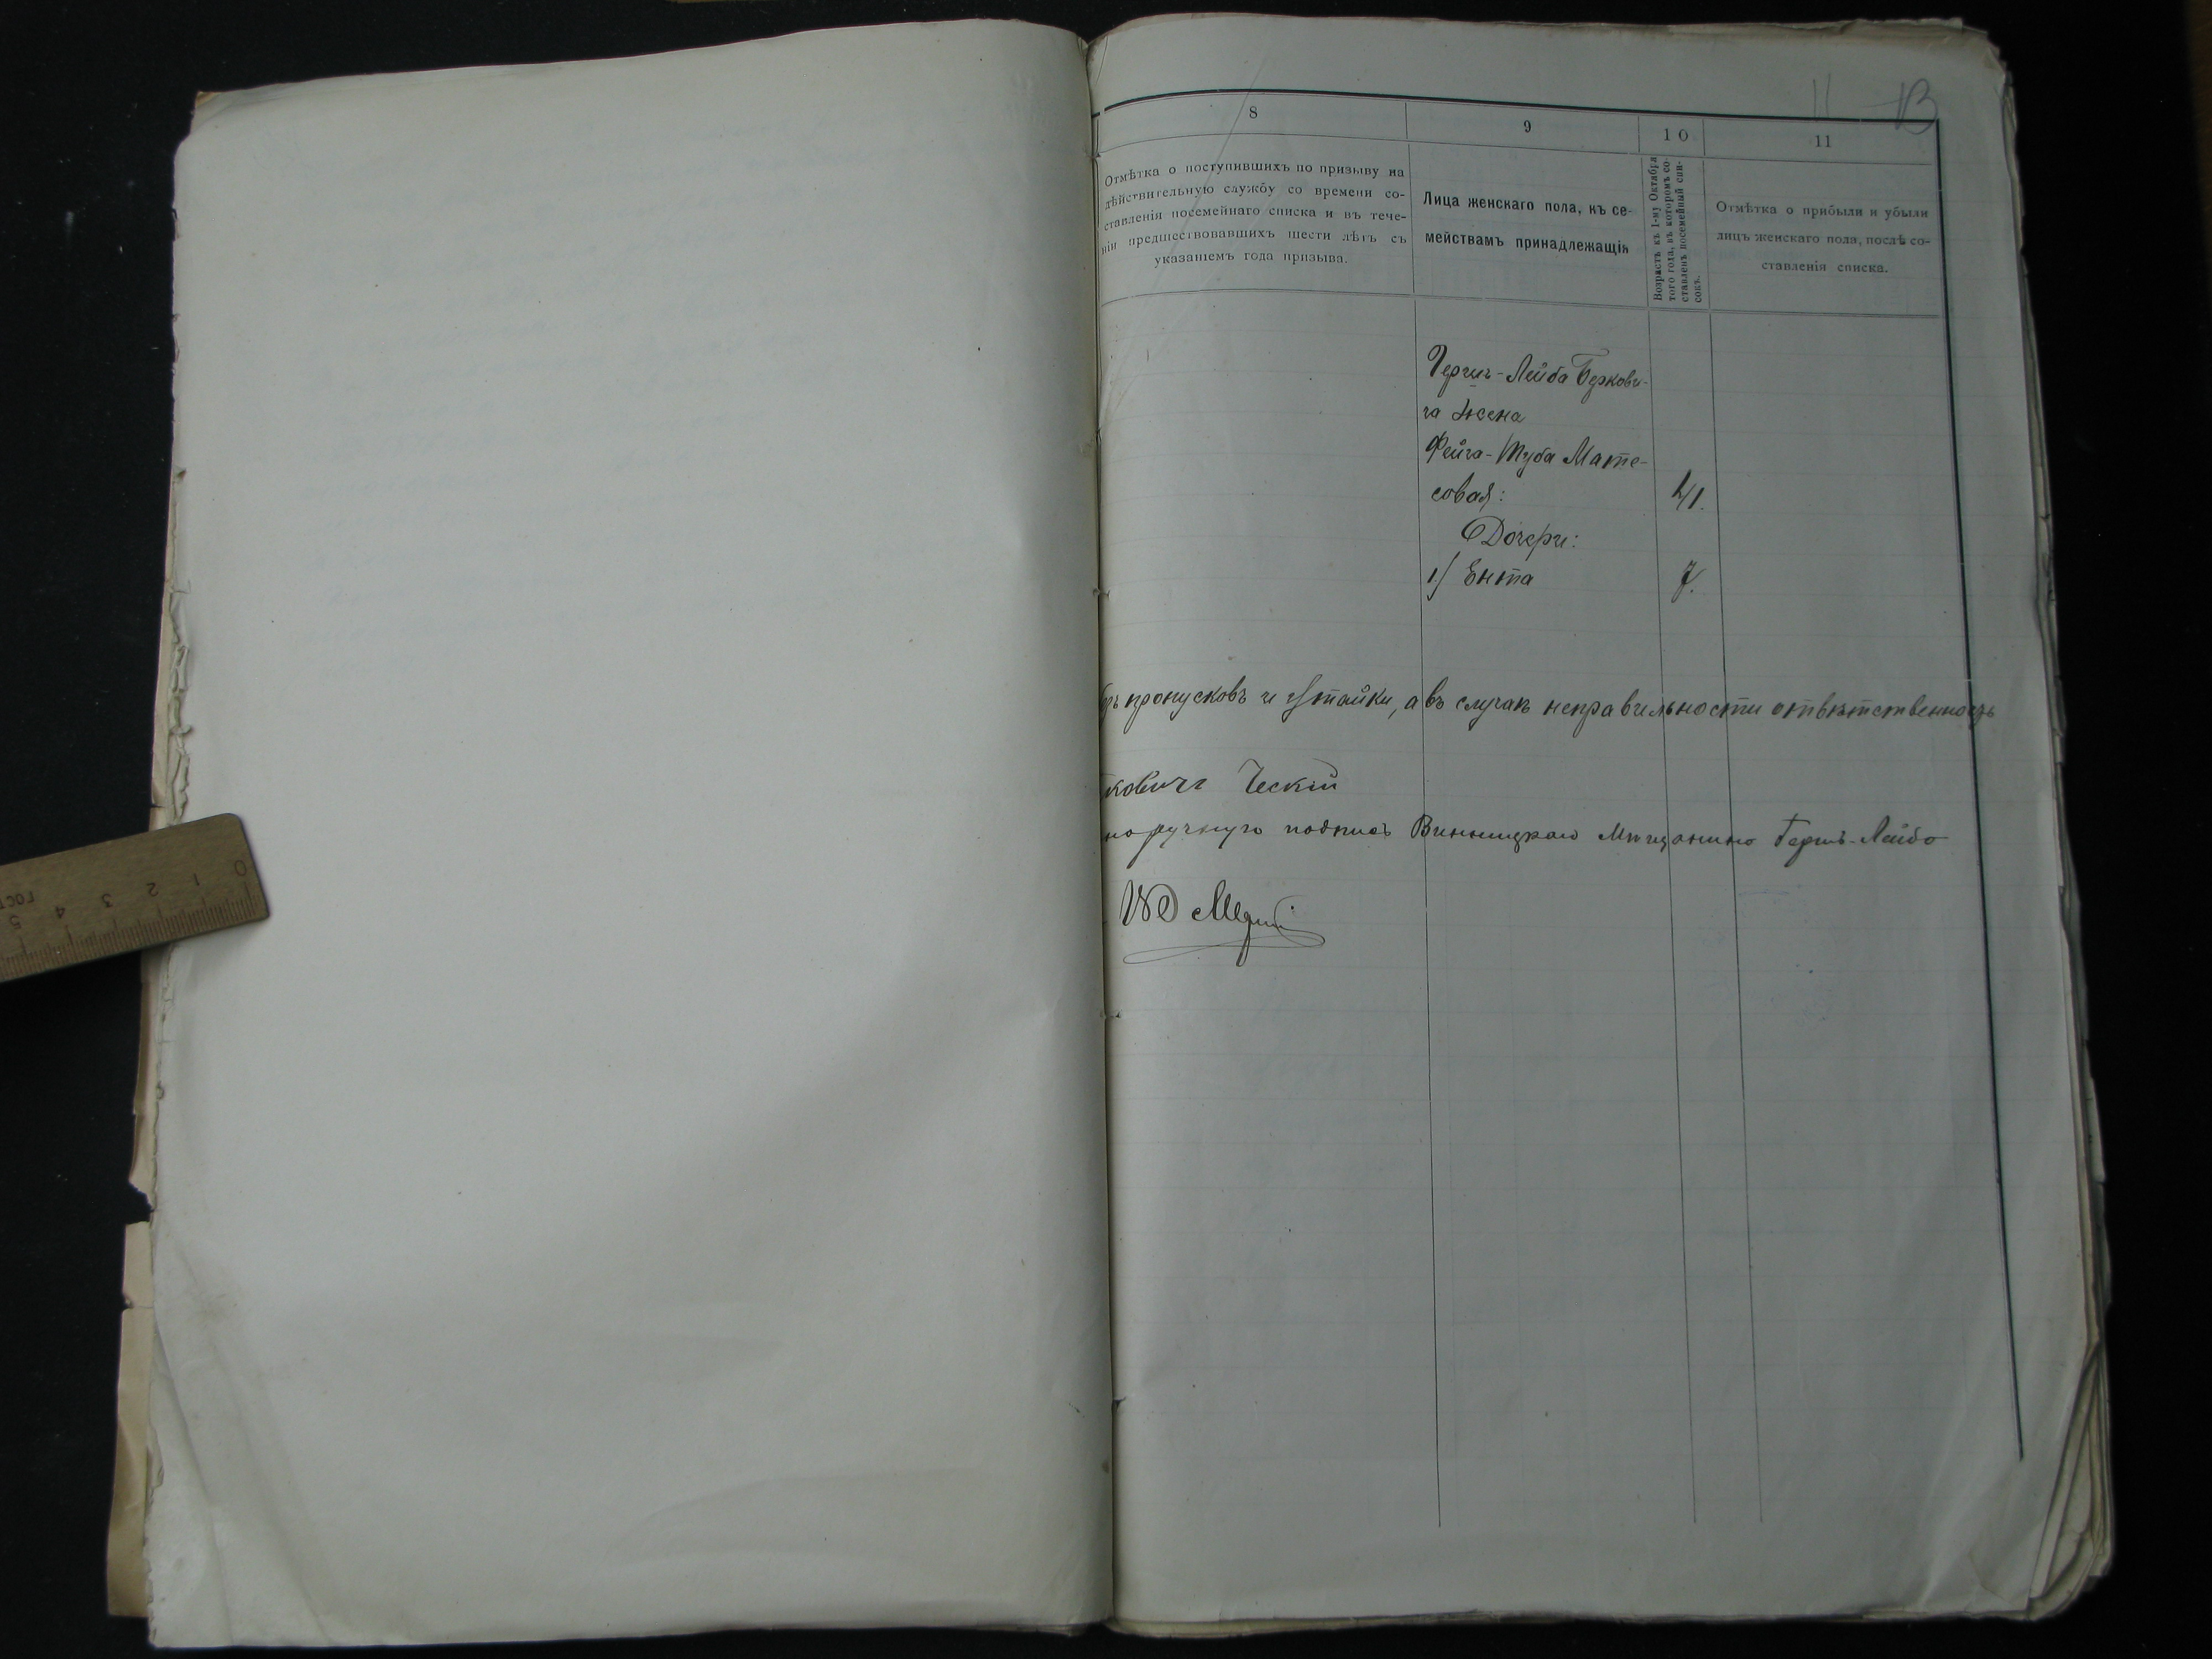 11 13
8
9
10
11
Отмѣтка о поступившихъ по призыву на
дѣйствительную службу со времени со-
ставленія посемейнаго списка и въ тече-
ніи предшествовавшихъ шести лѣтъ съ
указаніемъ года призыва.
Лица женскаго пола, къ се-
мействамъ принадлежащія
Возрастъ къ 1-му Октября
того года, въ которомъ со-
ставленъ посемейный спи-
сокъ.
Отмѣтка о прибыли и убыли
лицъ женскаго пола, послѣ со-
ставленія списка.
Гершъ-Лейба Беркови-
ча Жена
Фейга-Туба Мате-
совая: 41.
Дочери:
1) Ента 7.
пропусковъ и утайки, а въ случаѣ неправильности отвѣтственность
ковичъ Ческій
норучную подпись Винницкаго Мѣщанина Гершъ-Лейбо
0 1 2 3 4 5
ГОСТ